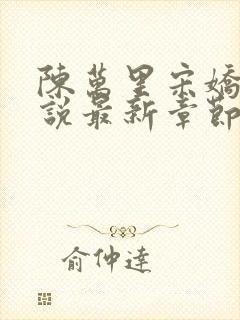 陳萬里宋嬌
說最新章節
俞仲達